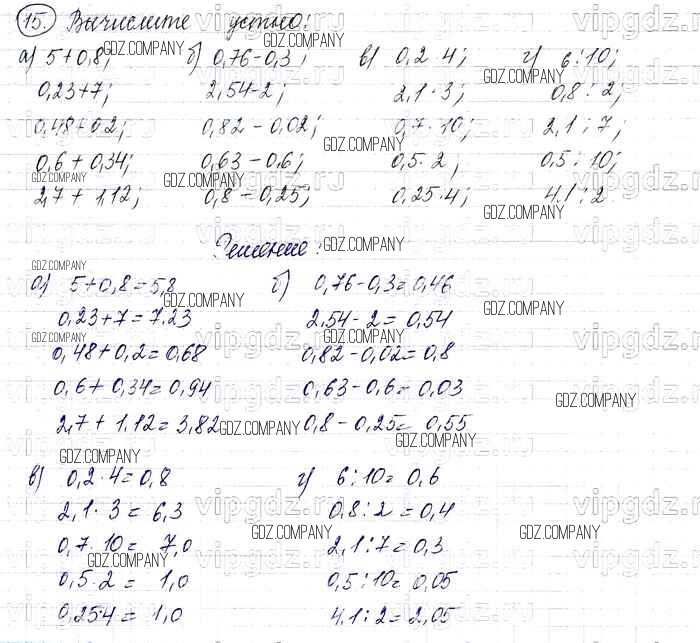 15. Вычислите устно:
а) 5+0,8; б) 0,76-0,3; в) 0,2·4; г) 6:10;
0,23+7; 2,54-2; 2,1·3; 0,8:2;
0,48+0,2; 0,82-0,02; 0,7·10; 2,1:7;
0,6+0,34; 0,63-0,6; 0,5·2; 0,5:10;
2,7+1,12; 0,8-0,25; 0,25·4; 4,1:2
Решение:
а) 5+0,8=5,8 б) 0,76-0,3=0,46
0,23+7=7.23 2,54-2=0,54
0,48+0,2=0,68 0,82-0,02=0,8
0,6+0,34=0,94 0,63-0,6=0,03
2,7+1,12=3,82 0,8-0,25=0,55
в) 0,2·4=0,8 г) 6:10=0,6
2,1·3=6,3 0,8:2=0,4
0,7·10=7,0 2,1:7=0,3
0,5·2=1,0 0,5:10=0,05
0,25·4=1,0 4,1:2=2,05
GDZ.COMPANY
vipgdz.ru